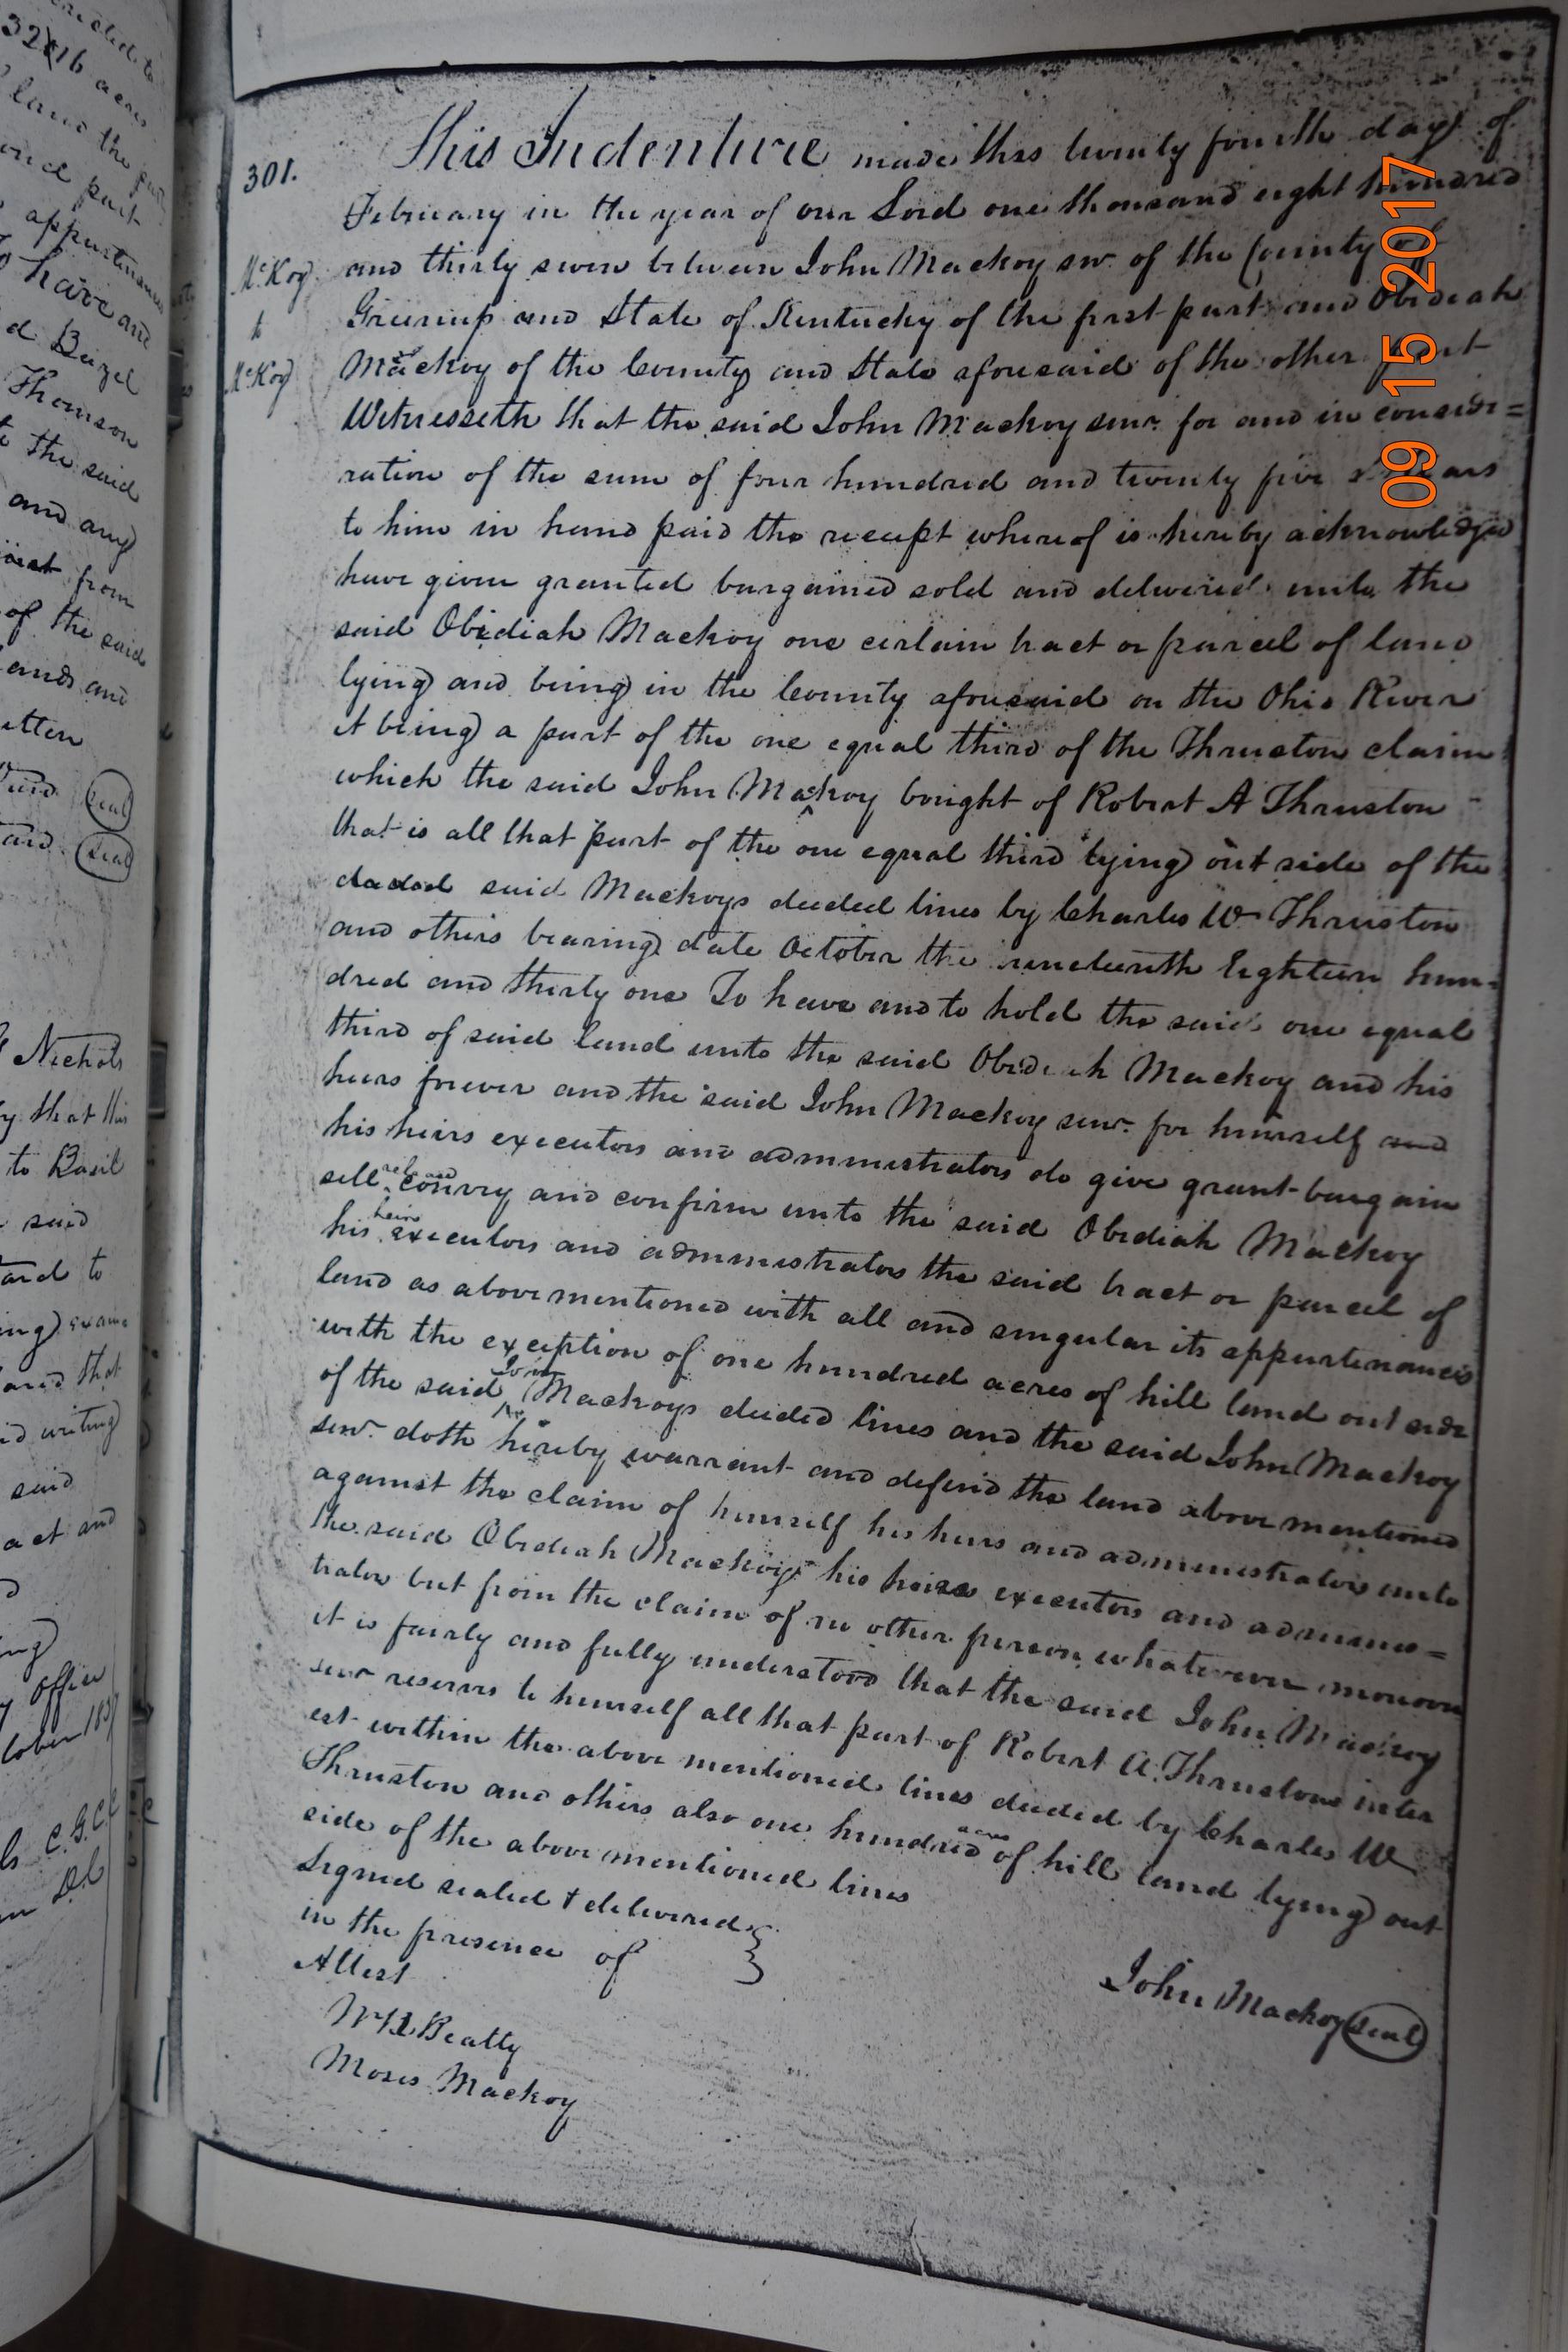 32 16 acres
land the
and part
appurtenances
have and
d. Bazel
Thomson
to the said
and any
from
of the said
and
Seal
Seal
Nichols
y that this
to Basil
said
to
and that
writing
said
act and
office
C.G.C.C
D.C
301.
McKoy
to
McKoy
This Indenture made this twenty fourth day of
February in the year of our Lord one thousand eight hundred
and thirty seven between John Mackoy senr. of the County of
Greenup and State of Kentucky of the first part and Obediah
Mackoy of the County and State aforesaid of the other part
Witnesseth that the said John Mackoy senr. for and in conside=
ration of the sum of four hundred and twenty five dollars
to him in hand paid the receipt whereof is hereby acknowledged
have given granted bargained sold and delivered unto the
said Obediah Mackoy one certain tract or parcel of land
lying and being in the County aforesaid on the Ohio River
it being a part of the one equal third of the Thruston claim
which the said John Mackoy bought of Robert A Thruston
that is all that part of the one equal third lying out side of the
said Mackoys deeded lines by Charles W Thruston
and others bearing date October the nineteenth Eighteen hun=
dred and thirty one To have and to hold the said one equal
third of said land unto the said Obediah Mackoy and his
heirs forever and the said John Mackoy senr. for himself and
his heirs executors and administrators do give grant bargain
sell convey and confirm unto the said Obediah Mackoy
his heirs executors and administrators the said tract or parcel of
land as above mentioned with all and singular its appurtenances
with the exception of one hundred acres of hill land out side
of the said John Mackoys deeded lines and the said John Mackoy
senr. doth hereby warrant and defend the land above mentioned
against the claim of himself his heirs and administrators unto
the said Obediah Mackoy his heirs executors and adminis=
trators but from the claim of no other person whatever moreover
it is fairly and fully understood that the said John Mackoy
senr reserves to himself all that part of Robert A. Thrustons inter
est within the above mentioned lines deeded by Charles W
Thruston and others also one hundred acres of hill land lying out
side of the above mentioned lines
Signed sealed & delivered
in the presence of
Attest
John Mackoy Seal
Beatty
Moses Mackoy
09 15 2017